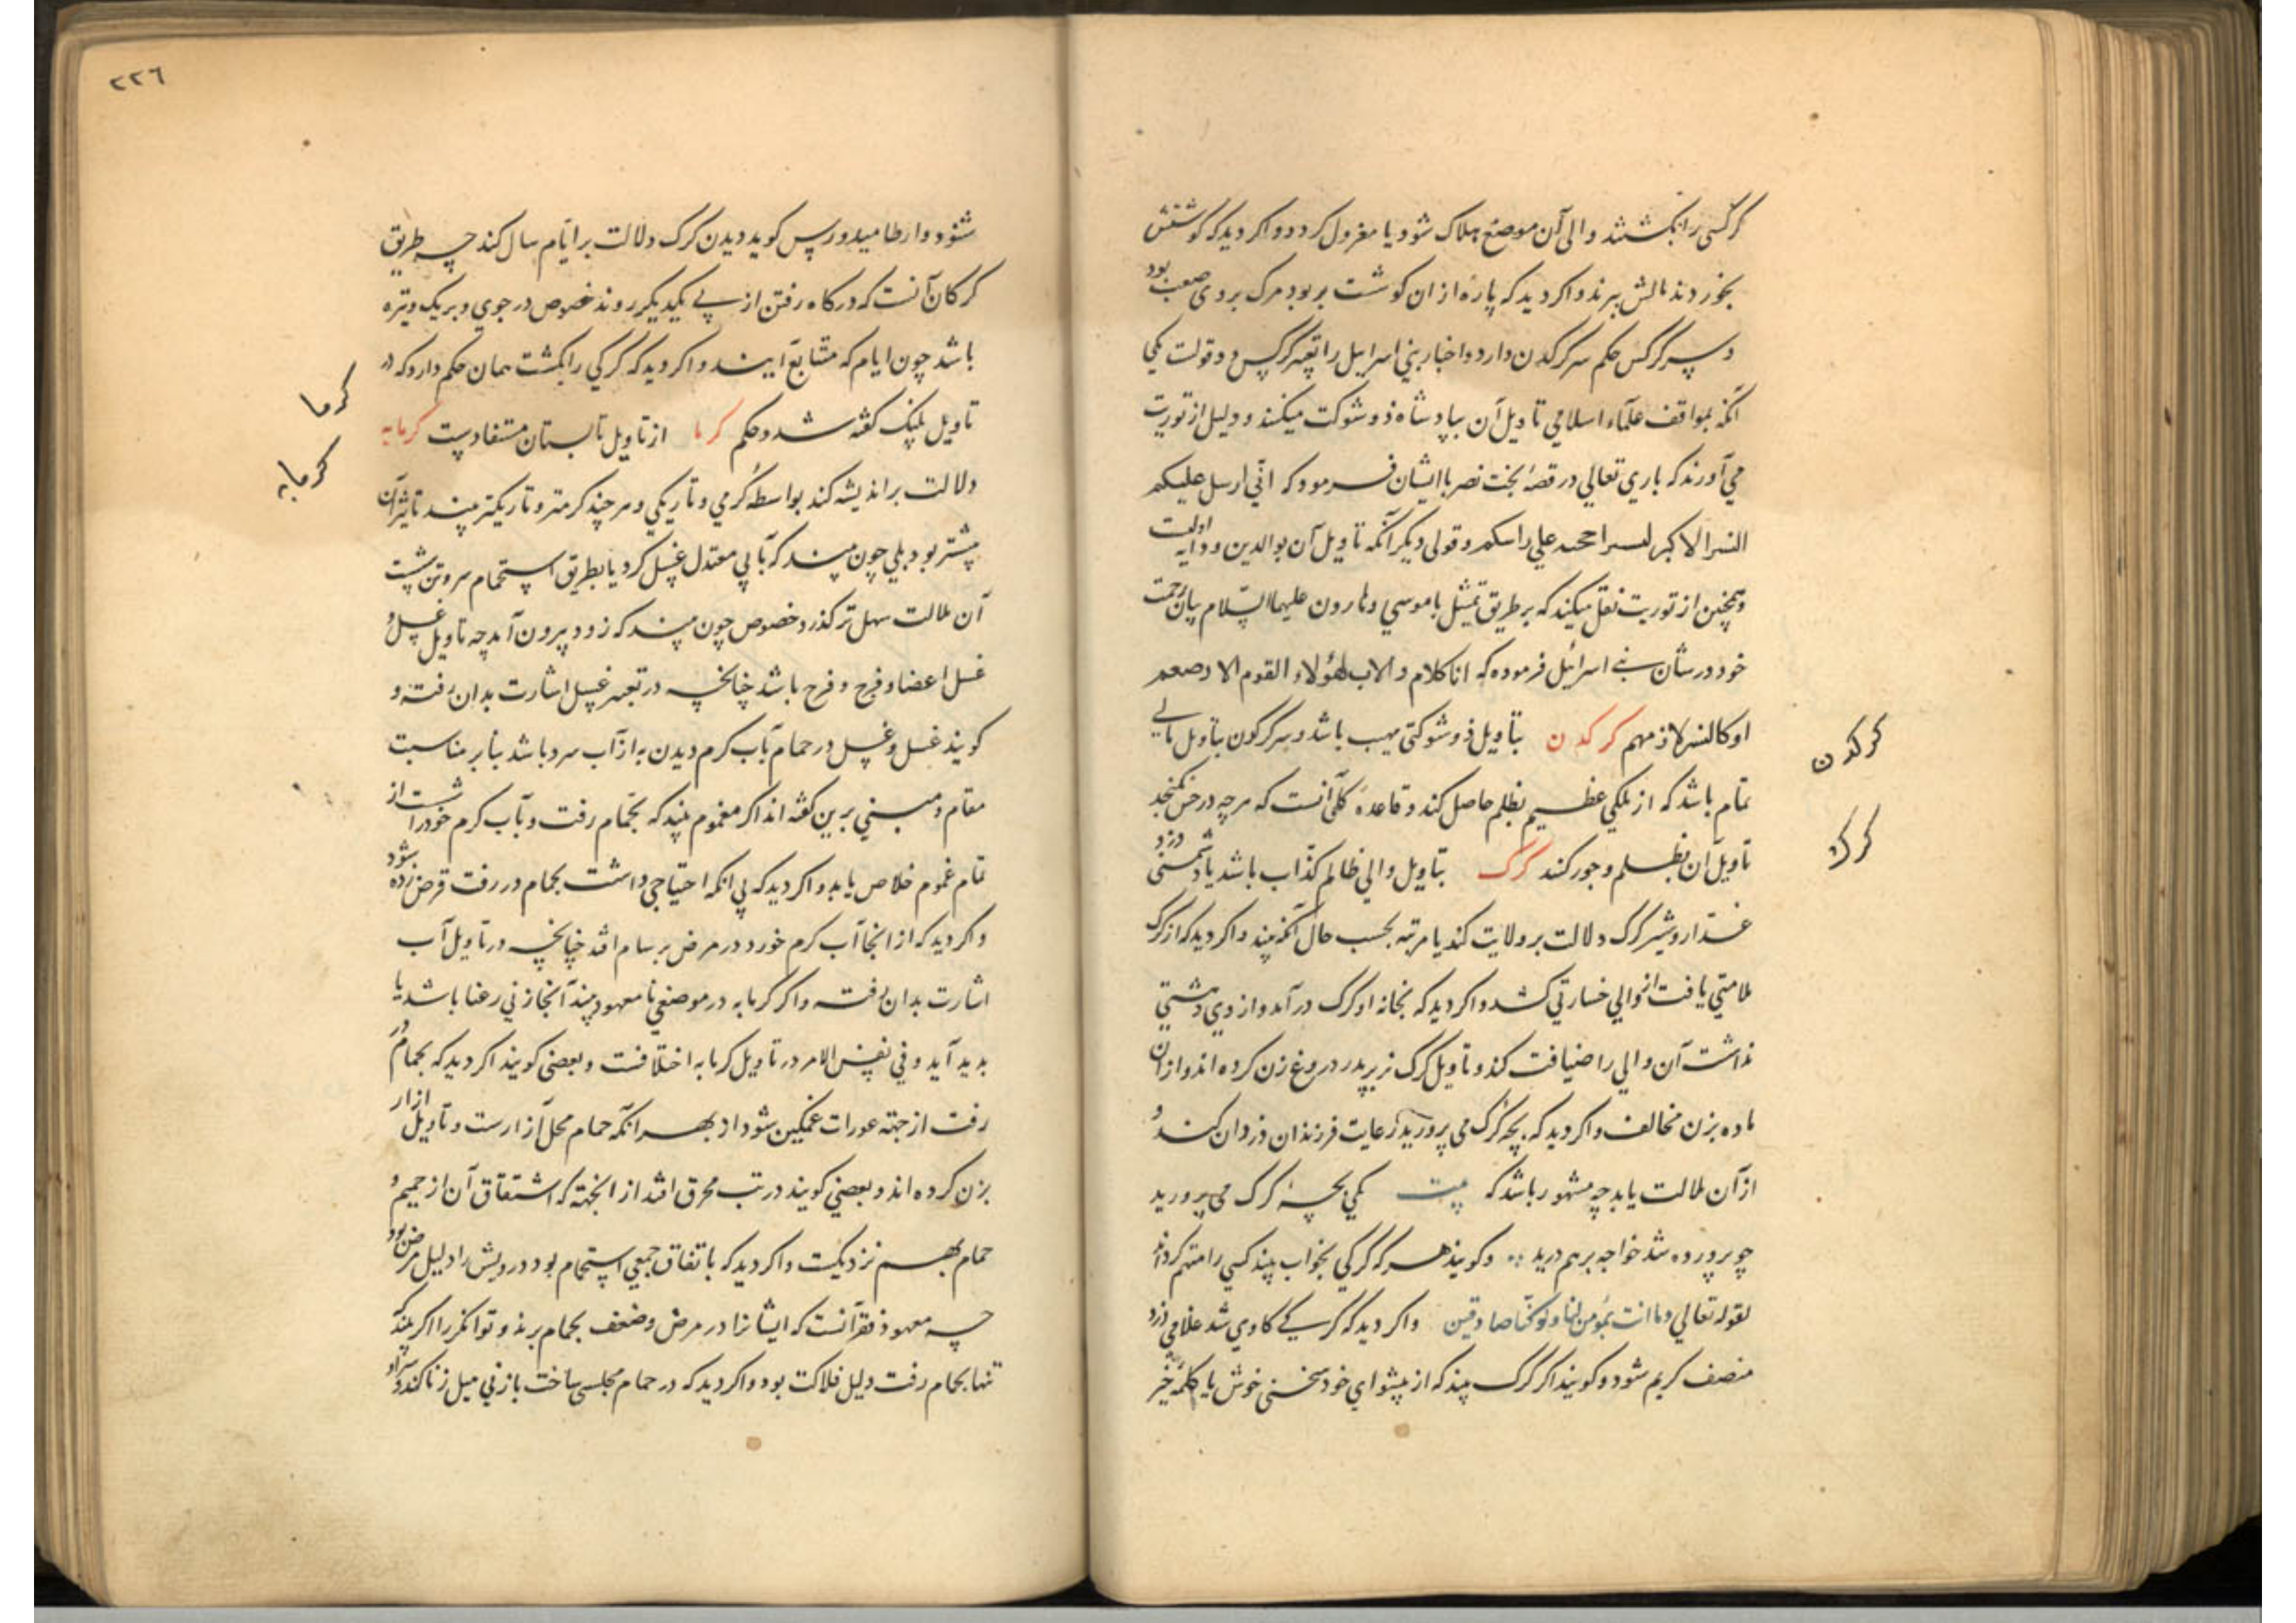 کرکسی را بکشتند والی آن موضع هلاک شود یا معزول کردد و اکر دید که کوشتش
بخوردند مالش ببرند و اکر دید که پاره از ان کوشت بربود مرک بر وی صعب بود
و سر کرکس حکم سر کرکدن دارد و اخبار بنی اسرایل را تعبیر کرکس دو قولست یکی
آنکه بمواقف علماء اسلامی تاویل آن بپادشاه ذو شوکت میکنند و دلیل از توریت
می آورند که باری تعالی در قصه بخت نصر با ایشان فرمود که انی ارسل علیکم
النسر الاکبر علی و قولی دیکر آنکه تاویل آن بوالدین و دایه اولیست
و همچنین از توریت نقل میکند که بر طریق تمثل با موسی و هارون علیهما السلام بیان رحمت
خود در شان بنی اسرائل فرموده که انا کلام والاب لهؤلاء القوم الا
او کالنسر لاز مهم کرکدن بتاویل ذو شوکتی مهیب باشد و سر کرکدن بتاویل مالی
تمام باشد که از ملکی عظیم بظلم حاصل کند و قاعده کلی آنست که هر چه در
تاویل آن بظلم و جور کنند کرک بتاویل والی ظالم کذاب باشد یا دشمنی دزد
غدار و شیر کرک دلالت بر ولایت کند یا مرتبه بحسب حال آنکه بیند و اکر دید که از کرک
ملامتی یافت از والی خسارتی کشد و اکر دید که بخانه او کرک در آمد و از وی دهشتی
نداشت آن والی را ضیافت کند و تاویل کرک نر بپدر دروغ زن کرده اند و از ان
ماده بزن مخالف و اکر دید که بچه کرک می پرورید رعایت فرزندان دزدان کند و
از آن ملالت یابد چه مشهور باشد که بیت یکی بچه کرک می پرورید
چو پرورده شد خواجه برهم درید و کویند هر که کرکی بخواب بیند کسی را متهم کرداند
لقوله تعالی وما انت بمؤمن لنا ولو کنا صادقین و اکر دید که کرکی کاوی شد غلامی دزد
منصف کریم شود و کویند اکر کرک بیند که از پیشوای خود سخنی خوش یا کلمه خیر
کرکدن
کرک
۲۲۶
شنود و ارطامیدورس کوید دیدن کرک دلالت بر ایام سال کند چه طریق
کرکان آنست که در کاه رفتن از پی یکدیکر روند خصوص در جوی و بر یک وتیره
باشد چون ایام که متتابع آیند و اکر دید که کرکی را بکشت همان حکم دارد که در
تاویل پلنک کفته شد و حکم کرما از تاویل تابستان مستفادست کرمابه
دلالت بر اندیشه کند بواسطه کرمی و تاریکی و هر چند کرمتر و تاریکتر بیند تاثیر آن
بیشتر بود بلی چون بیند که بآبی معتدل غسل کرد یا بطریق استحمام سر و تن بشست
آن ملالت سهل تر کذرد خصوص چون بیند که زود بیرون آمد چه تاویل غسل و
غسل اعضا و فرج و فرح باشد چنانچه در تعبیر غسل اشارت بدان رفته و
کویند غسل و غسل در حمام بآب کرم دیدن به از آب سرد باشد بنا بر مناسبت
مقام و مبنی برین کفته اند اکر مغموم بیند که بحمام رفت و بآب کرم خود را شست از
تمام غموم خلاص یابد و اکر دید که بی آنکه احتیاجی داشت بحمام در رفت قرض زده شود
و اکر دید که از انجا آب کرم خورد در مرض برسام افتد چنانچه در تاویل آب
اشارت بدان رفته و اکر کرمابه در موضعی نا معهود بیند آنجا زنی رعنا باشد یا
پدید آید و فی نفس الامر در تاویل کرمابه اختلافست و بعضی کویند اکر دید که بحمام در
رفت از جهة عورات غمکین شود از بهر آنکه حمام محل آزارست و تاویل ازار
بزن کرده اند و بعضی کویند در تب محرق افتد از انجهة که اشتقاق آن از حمیم و
حمام بهم نزدیکست و اکر دید که با تفاق جمعی استحمام بود درویش را دلیل مرض بود
چه معهود فقرا آنست که ایشانرا در مرض و ضعف بحمام برند و توانکر را اکر بیند که
تنها بحمام رفت دلیل فلاکت بود و اکر دید که در حمام مجلسی ساخت بازنی میل زنا کند و
کرما
کرمابه